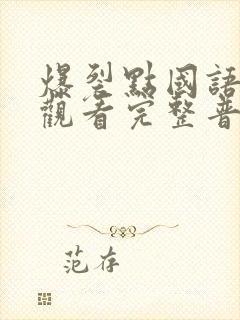 爆裂點國語
觀看完整普
范存